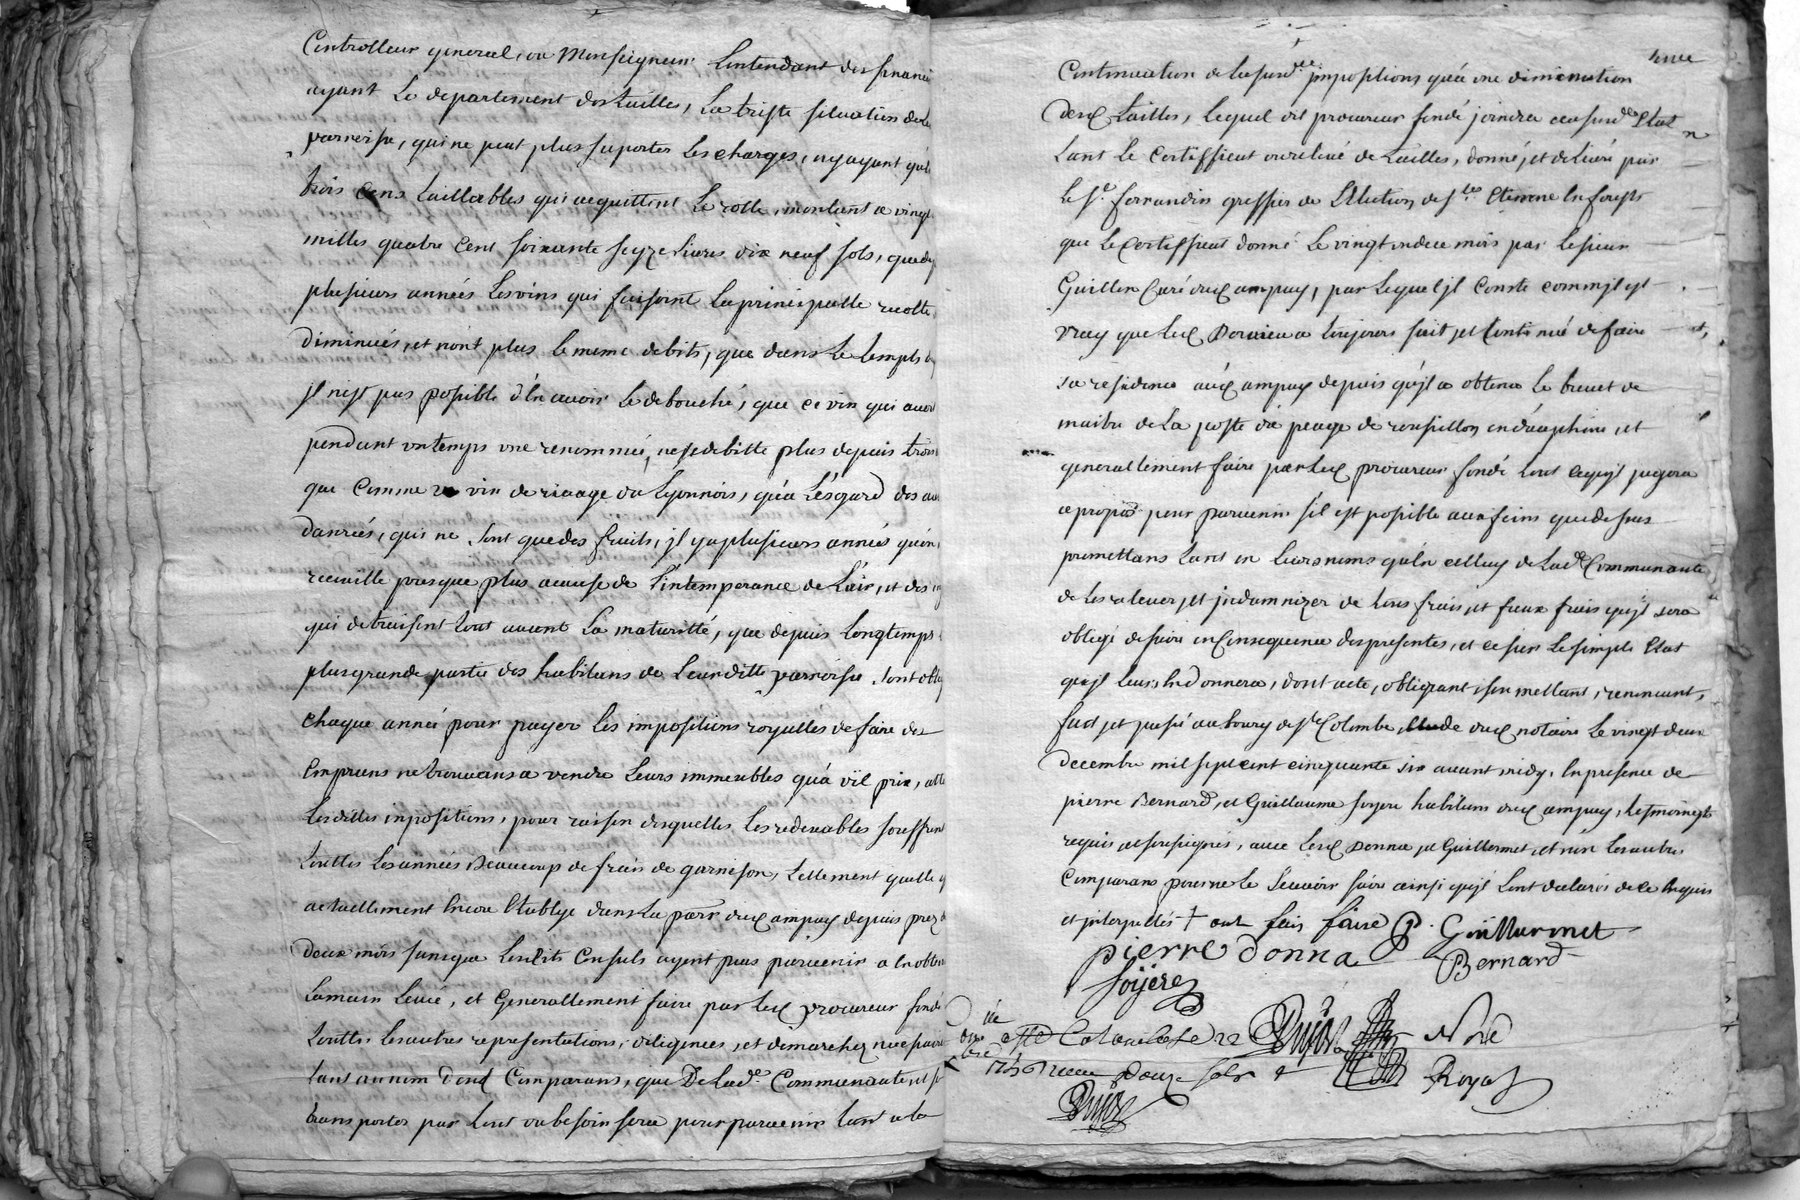 Controlleur general, ou Monseigneur Lintendant des financ
ayant Le departement des tailles, La triste situation de La
parroisse, qui ne peut plus suporter Les charges, ny ayant qu'
trois cens taillables qui acquittent Le rolle, montant a vingt
milles quatre cent soixante seyze livres dix neuf sols, que dep
plusieurs années Les vins qui faisoint La principalle recolte
diminués, et n'ont plus le meme debits, que dans Le temps
jl n'est pas possible d'en avoir Le debouché, que ce vin qui avoit
pendant un temps une renommée, ne se debitte plus depuis trois
que comme vin de rivage du Lyonnois, qu'a L'esgard des au
danrées, qui ne sont que des fruits, jl y a plusieurs années qu'on
receuille presque plus acause de l'intemperance de L'air, et des
qui detruisent tout avant La maturitté, que depuis Longtemps
plus grande partie des habitans de Leurditte parroisse sont obl
chaque année pour payer les impositions royalles de faire des
empruns ne trouvans a vendre Leurs immeubles qu'a vil prix,
Lesdittes inpositions, pour raison desquelles Les redevables souffrent
touttes Les années Beaucoup de frais de garnison, tellement quelle
actuellement encore establye dans La parr dud ampuy depuis prez
deux mois sans que Lesdits Consuls ayent pus parvenir a en obten
La main Levée, et Generallement faire par Led procureur fondé
touttes Les autres representations, diligences, et demarches
tant au nom desd Comparans, que De Lad.e Communauté, et se
transporter par tout ou besoin sera pour parvenir tant a la
Continuation de Lasusd.tte jmpositions qu'a une diminution
desd tailles, Lequel dit procureur fondé joindra au susd Etat
tant Le Certifficat ou relevé de tailles, donné, et delivré par
le S.r ferrandin greffier de L'Election de S.t Etienne en forests
que Le Certifficat donné Le vingt un de ce mois par Le sieur
Guillen Curé dud ampuy, par Lequel jl Conste comm jl est
vray que Led Donnea toujours fait, et Continué de faire
sa residence aud ampuy depuis qu'jl a obtenu le brevet de
maitre de La poste du peage de rousillon en dauphiné, et
generallement faire par Led procureur fondé tout ce qu'jl jugera
a propos pour parvenir s'il est possible aux feins que dessus
promettans tant en leurs noms qu'en celluy de Lad.e Communauté
de Les relever, et jndamnizer de tous frais, et faux frais qu'jl sera
obligé de faire en Consequence des presentes, et ce sur Le simple Etat
qu'jl Leurs En donnera, dont acte, obligeant, soumettant, renoncant,
fait, et passé au bourg de S.te Colombe, Etude dud notaire Le vingt deux
decembre mil sept cent cinquante six avant midy, En presence de
pierre Bernard, et Guillaume soyere habitans dud ampuy, tesmoingts
requis et soussignés, avec Lesd Donna et Guillermet, et non Les autres
Comparans pour ne le Scavoir faire ainsi qu'jl L'ont declarés de ce Enquis
et jnterpellés
P. Guillermet
pierre donna
Bernard
Soyere
Dujast
N.re
Royal
Dujast